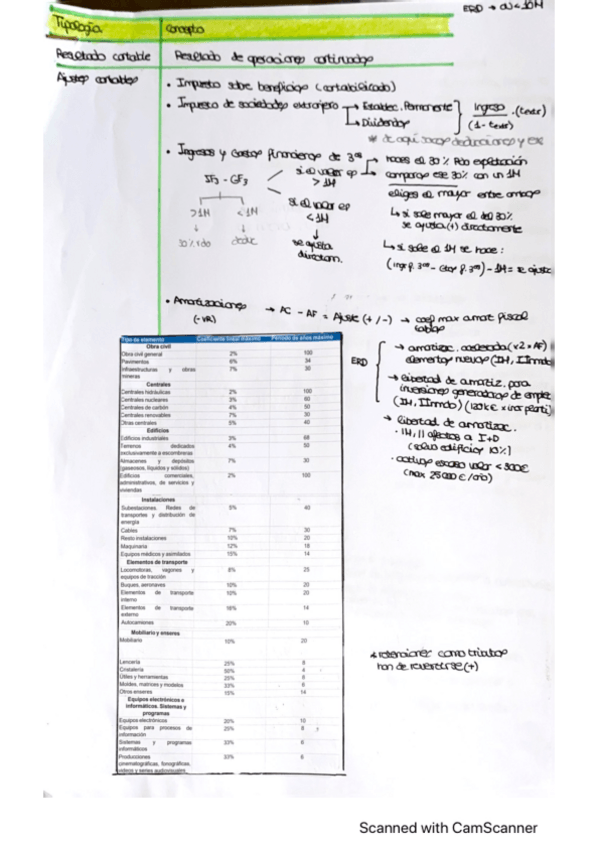 ERD →
Tipología Concepto
Resultado contable Resultado de operaciones continuadas
Ajustes contables • Impuesto sobre beneficios (contabilizado)
• Impuesto de sociedades extranjero → Establec. Permanente
↳ Dividendos
Ingreso . (text)
(1 - text)
* de aquí deducciones y ex
• Ingresos y Gastos financieros de 3os
→ haces el 30% Rdo explotación
comparas ese 30% con un 1M
eliges el mayor entre ambos
IF3 - GF3
si el valor es
> 1M
si el valor es
< 1M
↓
se ajusta
directam.
>1M <1M
↓ ↓
30% rdo deduc
↳ si sale mayor el del 30%
se ajusta (+) directamente
↳ si sale el 1M se hace:
(ing f. 3os - Gtos f. 3os) - 1M = se ajusta
• Amortizaciones → AC - AF = Ajuste (+/-) → coef max amat fiscal
(-VR) tablas
ERD
→ amortizac. acelerada (x2 x AF)
elementos nuevos (IM, IInmob)
→ libertad de amortiz. para
inversiones generadoras de empleo
(IM, IInmob) (120k€ x incr plant)
→ libertad de amortizac.
• IM, II afectos a I+D
(salvo edificios 10%)
• activos escaso valor < 300€
(max 25000€/año)
* retenciones como tributos
han de revertirse (+)
Tipo de elemento Coeficiente lineal máximo Periodo de años máximo
Obra civil
Obra civil general 2% 100
Pavimentos 6% 34
Infraestructuras y obras mineras 7% 30
Centrales
Centrales hidráulicas 2% 100
Centrales nucleares 3% 60
Centrales de carbón 4% 50
Centrales renovables 7% 30
Otras centrales 5% 40
Edificios
Edificios industriales 3% 68
Terrenos dedicados exclusivamente a escombreras 4% 50
Almacenes y depósitos (gaseosos, líquidos y sólidos) 7% 30
Edificios comerciales, administrativos, de servicios y viviendas 2% 100
Instalaciones
Subestaciones. Redes de transportes y distribución de energía 5% 40
Cables 7% 30
Resto instalaciones 10% 20
Maquinaria 12% 18
Equipos médicos y asimilados 15% 14
Elementos de transporte
Locomotoras, vagones y equipos de tracción 8% 25
Buques, aeronaves 10% 20
Elementos de transporte interno 10% 20
Elementos de transporte externo 16% 14
Autocamiones 20% 10
Mobiliario y enseres
Mobiliario 10% 20
Lencería 25% 8
Cristalería 50% 4
Útiles y herramientas 25% 8
Moldes, matrices y modelos 33% 6
Otros enseres 15% 14
Equipos electrónicos e informáticos. Sistemas y programas
Equipos electrónicos 20% 10
Equipos para procesos de información 25% 8
Sistemas y programas informáticos 33% 6
Producciones cinematográficas, fonográficas, videos y series audiovisuales. 33% 6
Scanned with CamScanner